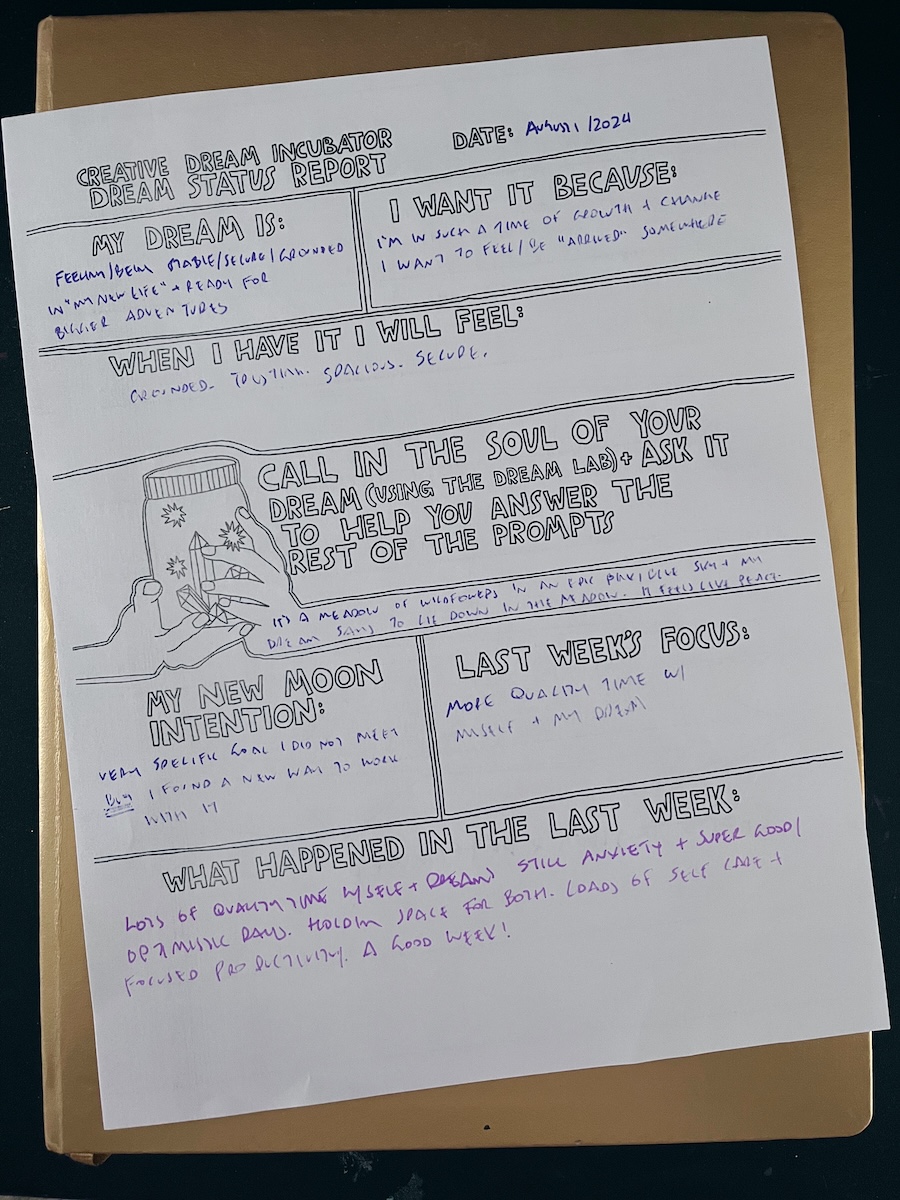 CREATIVE DREAM INCUBATOR
DREAM STATUS REPORT
DATE: AUGUST 1 / 2024
MY DREAM IS:
FEELING/BEING STABLE/SECURE/GROUNDED
IN "MY NEW LIFE" + READY FOR
BIGGER ADVENTURES
I WANT IT BECAUSE:
I'M IN SUCH A TIME OF GROWTH + CHANGE
I WANT TO FEEL/BE "ARRIVED" SOMEWHERE
WHEN I HAVE IT I WILL FEEL:
GROUNDED. TRUSTING. SPACIOUS. SECURE.
CALL IN THE SOUL OF YOUR
DREAM (USING THE DREAM LAB) + ASK IT
TO HELP YOU ANSWER THE
REST OF THE PROMPTS
IT'S A MEADOW OF WILDFLOWERS IN AN EPIC BLUE SKY + MY
DREAM SAYS TO LIE DOWN IN THE MEADOW. IT FEELS LIKE PEACE.
MY NEW MOON
INTENTION:
VERY SPECIFIC GOAL I DID NOT MEET
BUT I FOUND A NEW WAY TO WORK
WITH IT
LAST WEEK'S FOCUS:
MORE QUALITY TIME W/
MYSELF + MY DREAM
WHAT HAPPENED IN THE LAST WEEK:
LOTS OF QUALITY TIME W/SELF + DREAM) STILL ANXIETY + SUPER GOOD/
OPTIMISTIC DAYS. HOLDING SPACE FOR BOTH. LOADS OF SELF CARE +
FOCUSED PRODUCTIVITY. A GOOD WEEK!